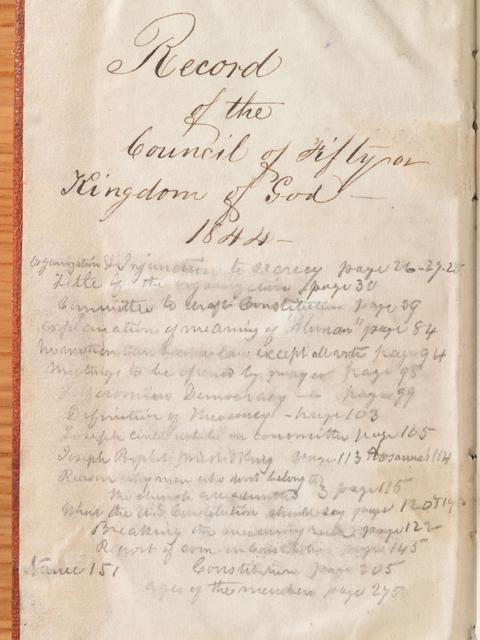 Record
of the
Council of Fifty or
Kingdom of God
1844
Organization & Injunction to secrecy page 26-27-28
Title of the organization page 30
Committee to draft Constitution page 39
Explanation of meaning of "Ahman" page 84
No motion can become law except all vote page 94
Meetings to be opened by prayer page 98
Democracy page 99
Definition of Theocracy - page 103
Joseph committee page 105
Joseph Prophet Priest & King page 113 Hosannah 114
Reason why men who dont belong to
the church are admitted 3 page 115
What the U.S. Constitution should say page 120
Breaking the page 122
Report of com. on Constitution page 145
Name 151 Constitution page 205
ages of the members page 275